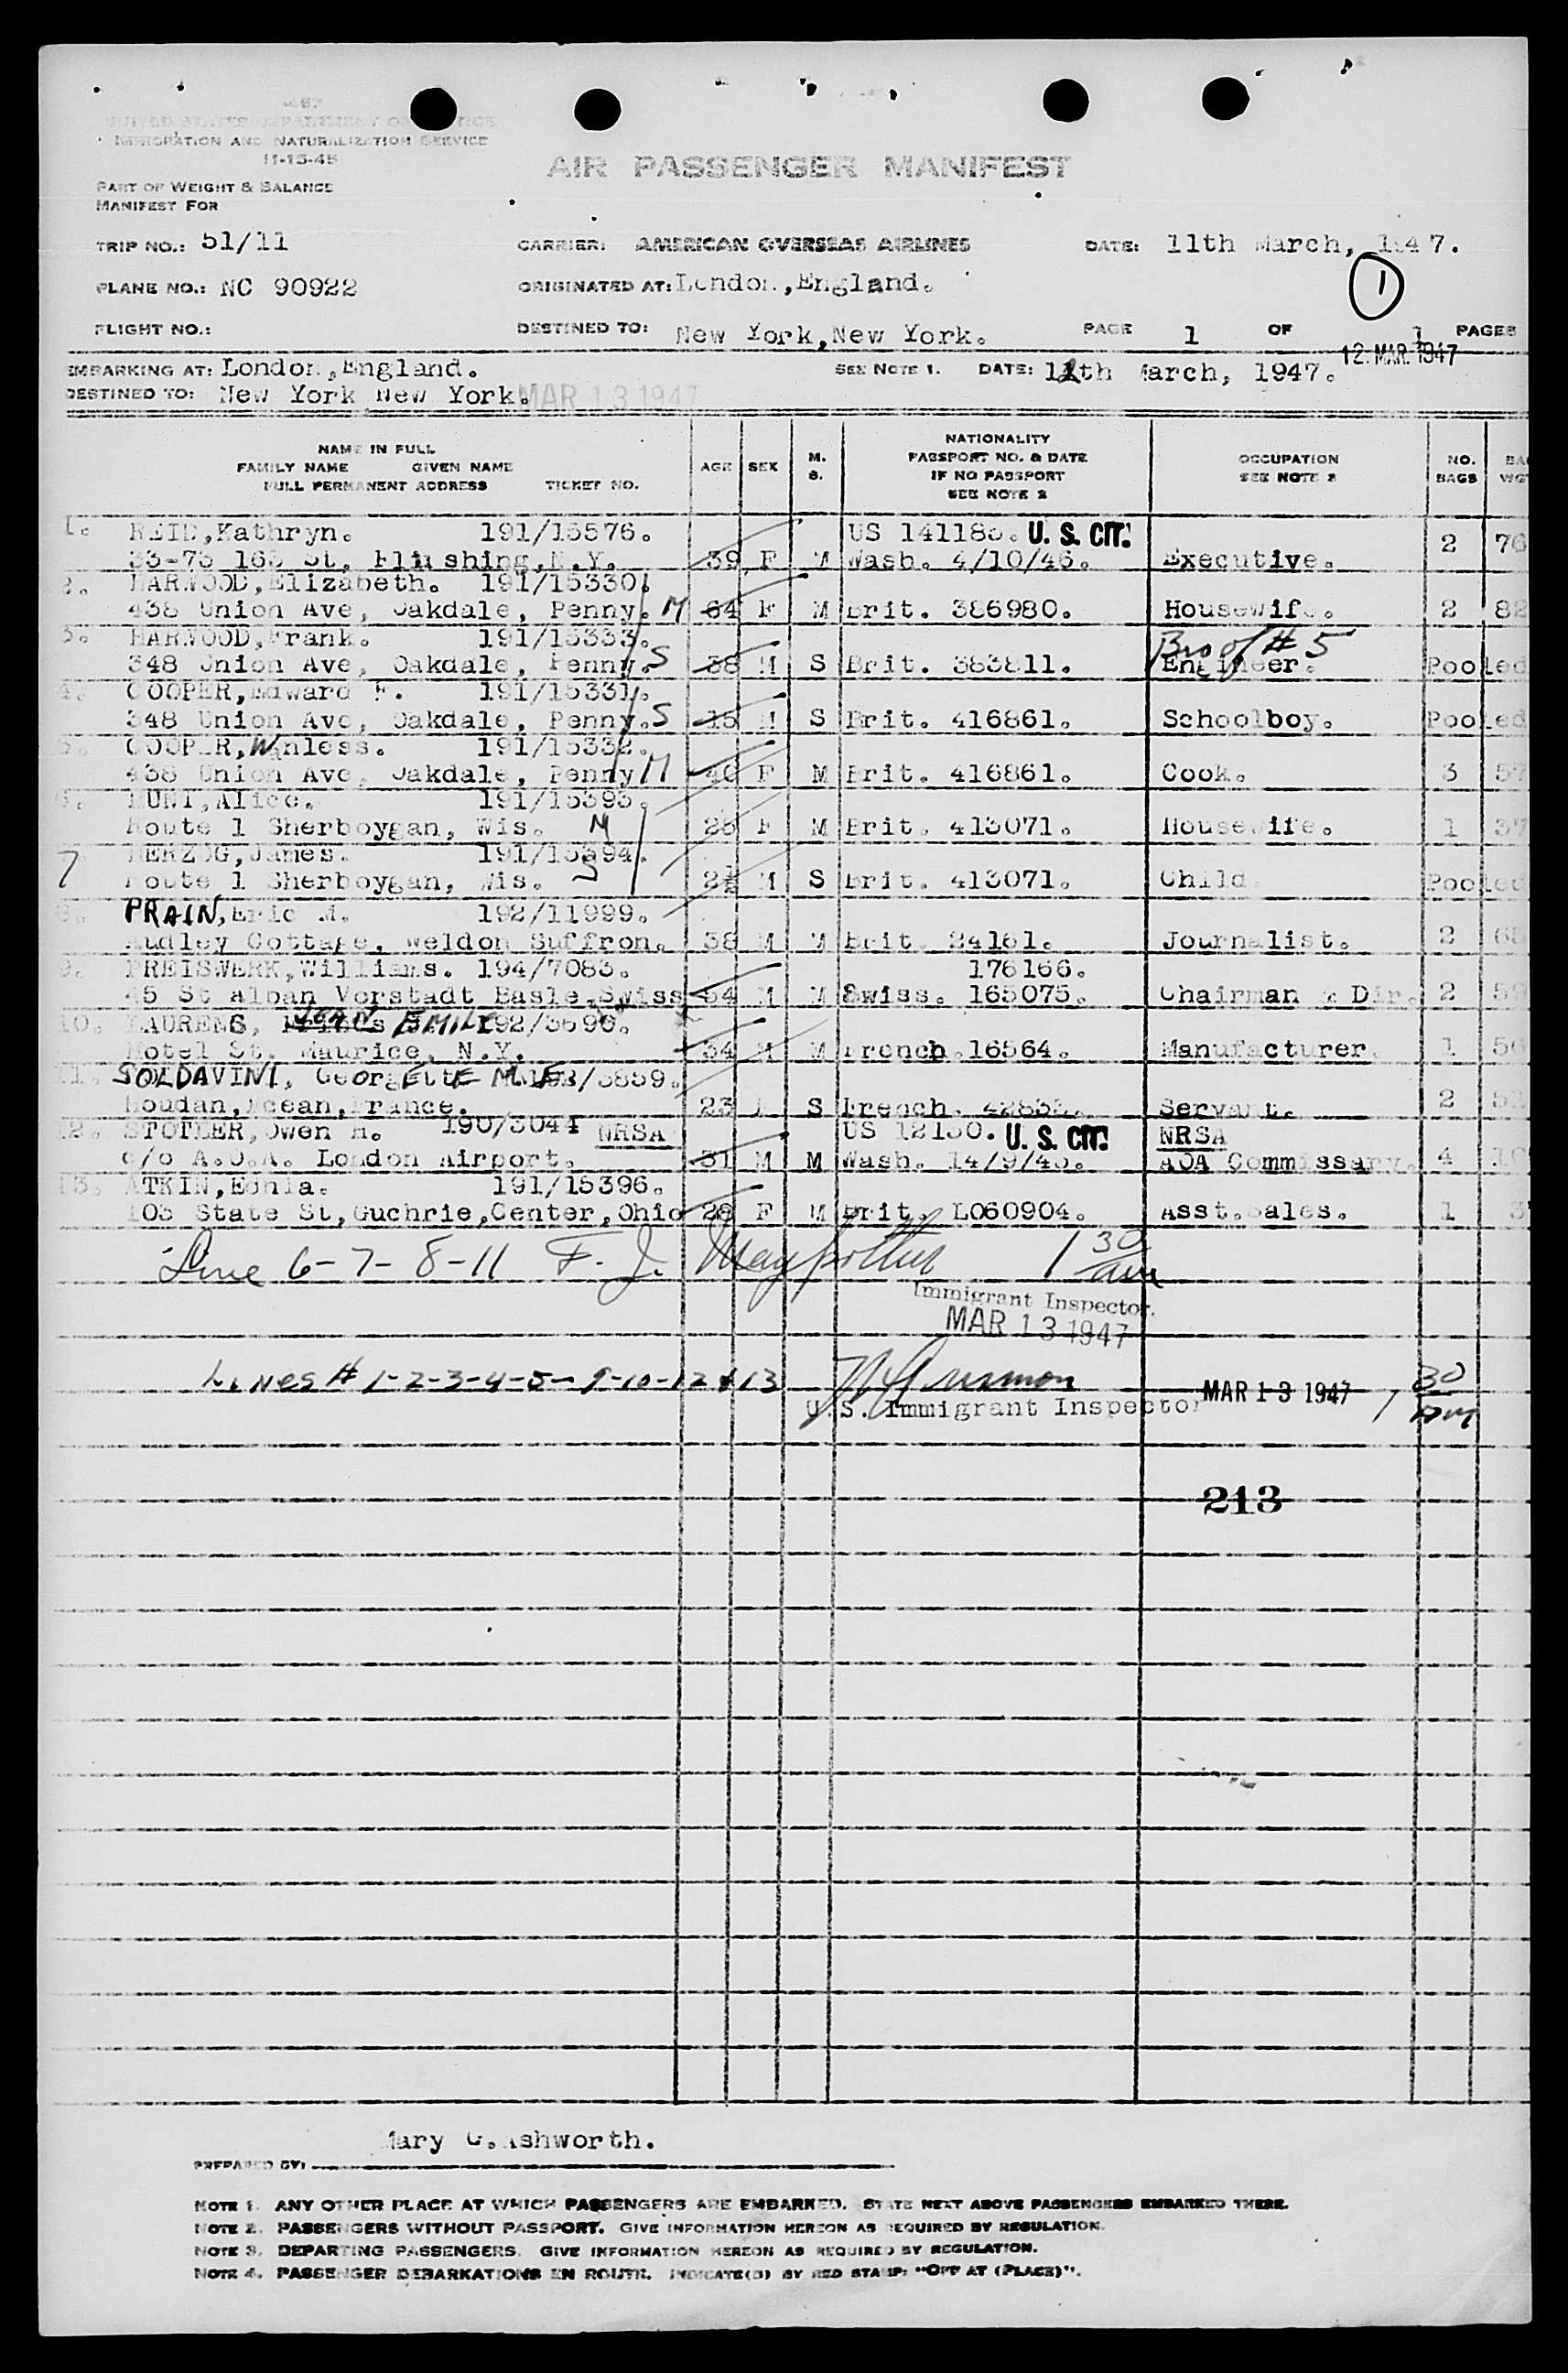 UNITED STATES DEPARTMENT OF JUSTICE
IMMIGRATION AND NATURALIZATION SERVICE
11-15-45
AIR PASSENGER MANIFEST
PART OF WEIGHT & BALANCE
MANIFEST FOR
TRIP NO.: 51/11 CARRIER: AMERICAN OVERSEAS AIRLINES DATE: 11th March, 1947.
PLANE NO.: NC 90922 ORIGINATED AT: London, England. 1
FLIGHT NO.: DESTINED TO: New York, New York. PAGE 1 OF 1 PAGES
12 MAR. 1947
EMBARKING AT: London, England. SEE NOTE 1. DATE: 12th March, 1947.
DESTINED TO: New York New York. MAR 13 1947
NAME IN FULL
FAMILY NAME GIVEN NAME
FULL PERMANENT ADDRESS TICKET NO. AGE SEX M. S. NATIONALITY PASSPORT NO. & DATE IF NO PASSPORT SEE NOTE 2 OCCUPATION SEE NOTE 2 NO. BAGS
1. REID, Kathryn. 191/15576. US 141185. U. S. CIT.
33-75 163 St, Flushing, N.Y. 39 F M Wash. 4/10/46. Executive. 2 76
2. HARWOOD, Elizabeth. 191/15330.
438 Union Ave, Oakdale, Penny. M 64 F M Brit. 386980. Housewife. 2 82
3. HARWOOD, Frank. 191/15333. Bro of # 5
348 Union Ave, Oakdale, Penny. S 38 M S Brit. 383811. Engineer. Pooled
4. COOPER, Edward F. 191/15331.
348 Union Ave, Oakdale, Penny. S 15 M S Brit. 416861. Schoolboy. Pooled
5. COOPER, Wanless. 191/15332.
438 Union Ave, Oakdale, Penny M 40 F M Brit. 416861. Cook. 3 57
6. HUNT, Alice. 191/15393.
Route 1 Sherboygan, Wis. M 25 F M Brit. 413071. Housewife. 1 37
7 HERZOG, James. 191/15394.
Route 1 Sherboygan, Wis. S 2½ M S Brit. 413071. Child. Pooled
8. PRAIN, Eric M. 192/11999.
Audley Cottage, Weldon Suffron. 38 M M Brit. 24161. Journalist. 2
9. PREISWERK, Williams. 194/7083. 176166.
45 St Alban Vorstadt Basle, Swiss 54 M M Swiss. 165075. Chairman & Dir. 2
10. LAURENS, JEAN EMILE 192/3690.
Hotel St. Maurice, N.Y. 34 M M French. 16564. Manufacturer. 1
11. SOLDAVINI, GeorgEttE M. 192/3859.
Houdan, France. 23 F S French. Servant. 2
12. STOTLER, Owen H. 190/3044 NRSA US 12150. U. S. CIT. NRSA
c/o A.O.A. London Airport. 31 M M Wash. 14/9/45. AOA Commissary. 4
13. ATKIN, Edna. 191/15396.
103 State St, Guchrie, Center, Ohio 28 F M Brit. L060904. Asst. Sales. 1
Line 6-7-8-11 F. J. 1 30 am
Immigrant Inspector.
MAR 13 1947
Lines # 1-2-3-4-5-9-10-12 & 13 MAR 13 1947 1 30 AM
U.S. Immigrant Inspector
213
Mary G. Ashworth.
PREPARED BY:
NOTE 1. ANY OTHER PLACE AT WHICH PASSENGERS ARE EMBARKED. STATE NEXT ABOVE PASSENGERS EMBARKED THERE.
NOTE 2. PASSENGERS WITHOUT PASSPORT. GIVE INFORMATION HEREON AS REQUIRED BY REGULATION.
NOTE 3. DEPARTING PASSENGERS. GIVE INFORMATION HEREON AS REQUIRED BY REGULATION.
NOTE 4. PASSENGER DEBARKATIONS EN ROUTE. INDICATE(D) BY RED STAMP: "OFF AT (PLACE)".